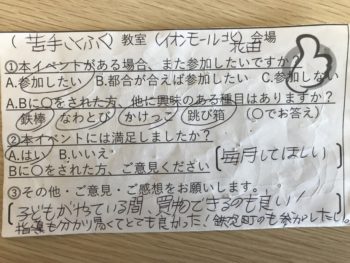 (苦手こくふく)教室(イオンモール北花田)会場
①本イベントがある場合、また参加したいですか?
A.参加したい B.都合が合えば参加したい C.参加しない
A.Bに〇をされた方、他に興味のある種目はありますか?
鉄棒 なわとび かけっこ 跳び箱 (〇でお答え)
②本イベントには満足しましたか?
A.はい B.いいえ・
Bに〇をされた方、ご意見ください [毎月してほしい]
③その他・ご意見・ご感想をお願いします。
子どもがやっている間、買物できるのも良い!
指導も分かり易くてとても良かった!鉄